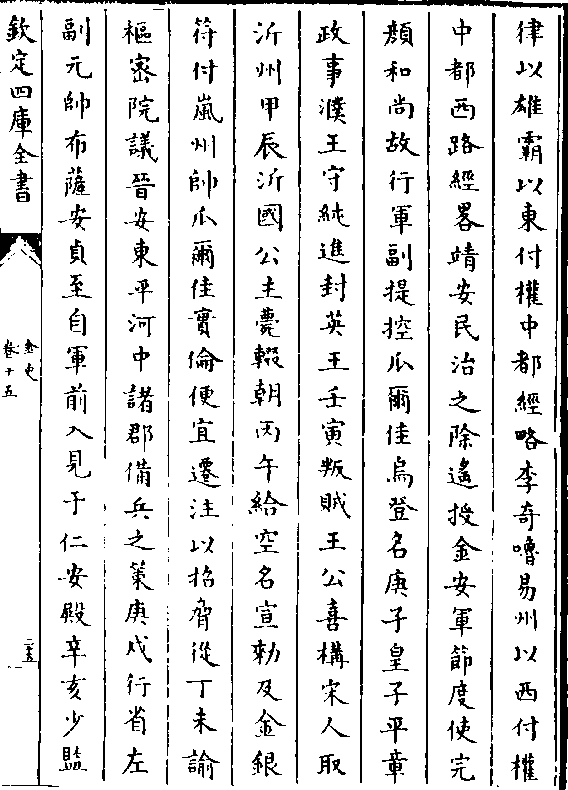 律以雄霸以東付權中都經略李奇嚕易州以西付權
中都西路經畧靖安民治之除遙授金安軍節度使完
顔和尚故行軍副提控瓜爾佳烏登名庚子皇子平章
政事濮王守純進封英王壬寅叛賊王公喜構宋人取
沂州甲辰沂國公主薨輟朝丙午給空名宣勅及金銀
符付嵐州帥瓜爾佳實倫便宜遷注以招脅從丁未諭
樞宻院議晉安東平河中諸郡備兵之策庚戌行省左
副元帥布薩安貞至自軍前入見于仁安殿辛亥少監
欽定四庫全書
金史
卷十五
二十五